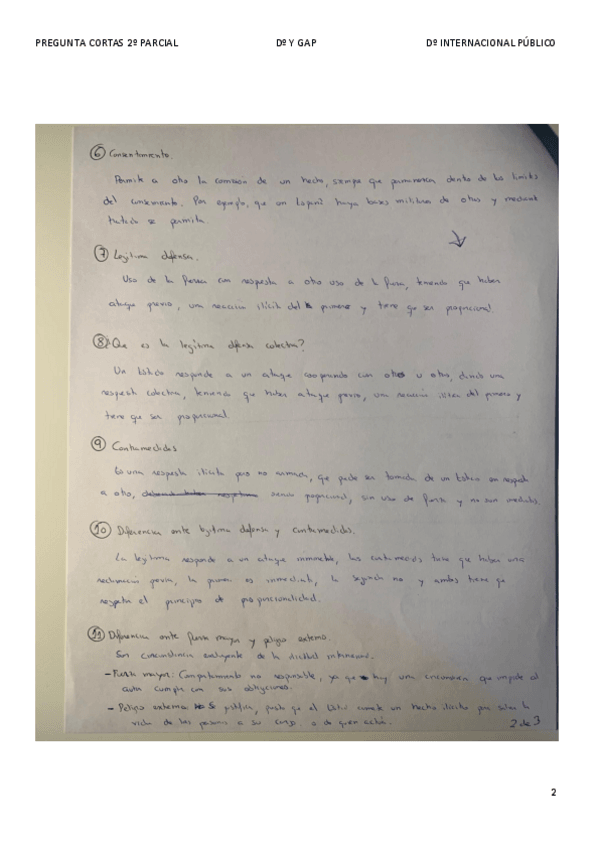 PREGUNTA CORTAS 2º PARCIAL Dº Y GAP Dº INTERNACIONAL PÚBLICO
⑥ Consentimiento.
Permite a otro la comisión de un hecho, siempre que permanezca dentro de los límites
del consentimiento. Por ejemplo, que en España haya bases militares de otros y mediante
tratado se permita.
⑦ Legítima defensa.
Uso de la fuerza como respuesta a otro uso de la fuerza, teniendo que haber
ataque previo, una reacción ilícita del primero y tiene que ser proporcional.
⑧ ¿Que es la legítima defensa colectiva?
Un Estado responde a un ataque cooperando con otro u otros, dando una
respuesta colectiva, teniendo que haber ataque previo, una reacción ilícita del primero y
tiene que ser proporcional.
⑨ Contramedidas
Es una respuesta ilícita pero no armada, que puede ser tomada de un Estado en respuesta
a otro, siendo proporcional, sin uso de fuerza y no son
⑩ Diferencia entre legítima defensa y contramedidas.
La legítima responde a un ataque inminente, las contramedidas tiene que haber una
reclamación previa, la primera es inmediata, la segunda no y ambos tiene que
respetar el principio de proporcionalidad.
⑪ Diferencia entre fuerza mayor y peligro extremo.
Son circunstancia excluyente de la ilicitud internacional.
- Fuerza mayor: Comportamiento no responsable, ya que hay una circunstancia que impide al
autor cumplir con sus obligaciones.
- Peligro extremo: Se justifica, puesto que el Estado comete un hecho ilícito para salvar la
vida de las personas a su cargo o de quien actúa.
2 de 3
2